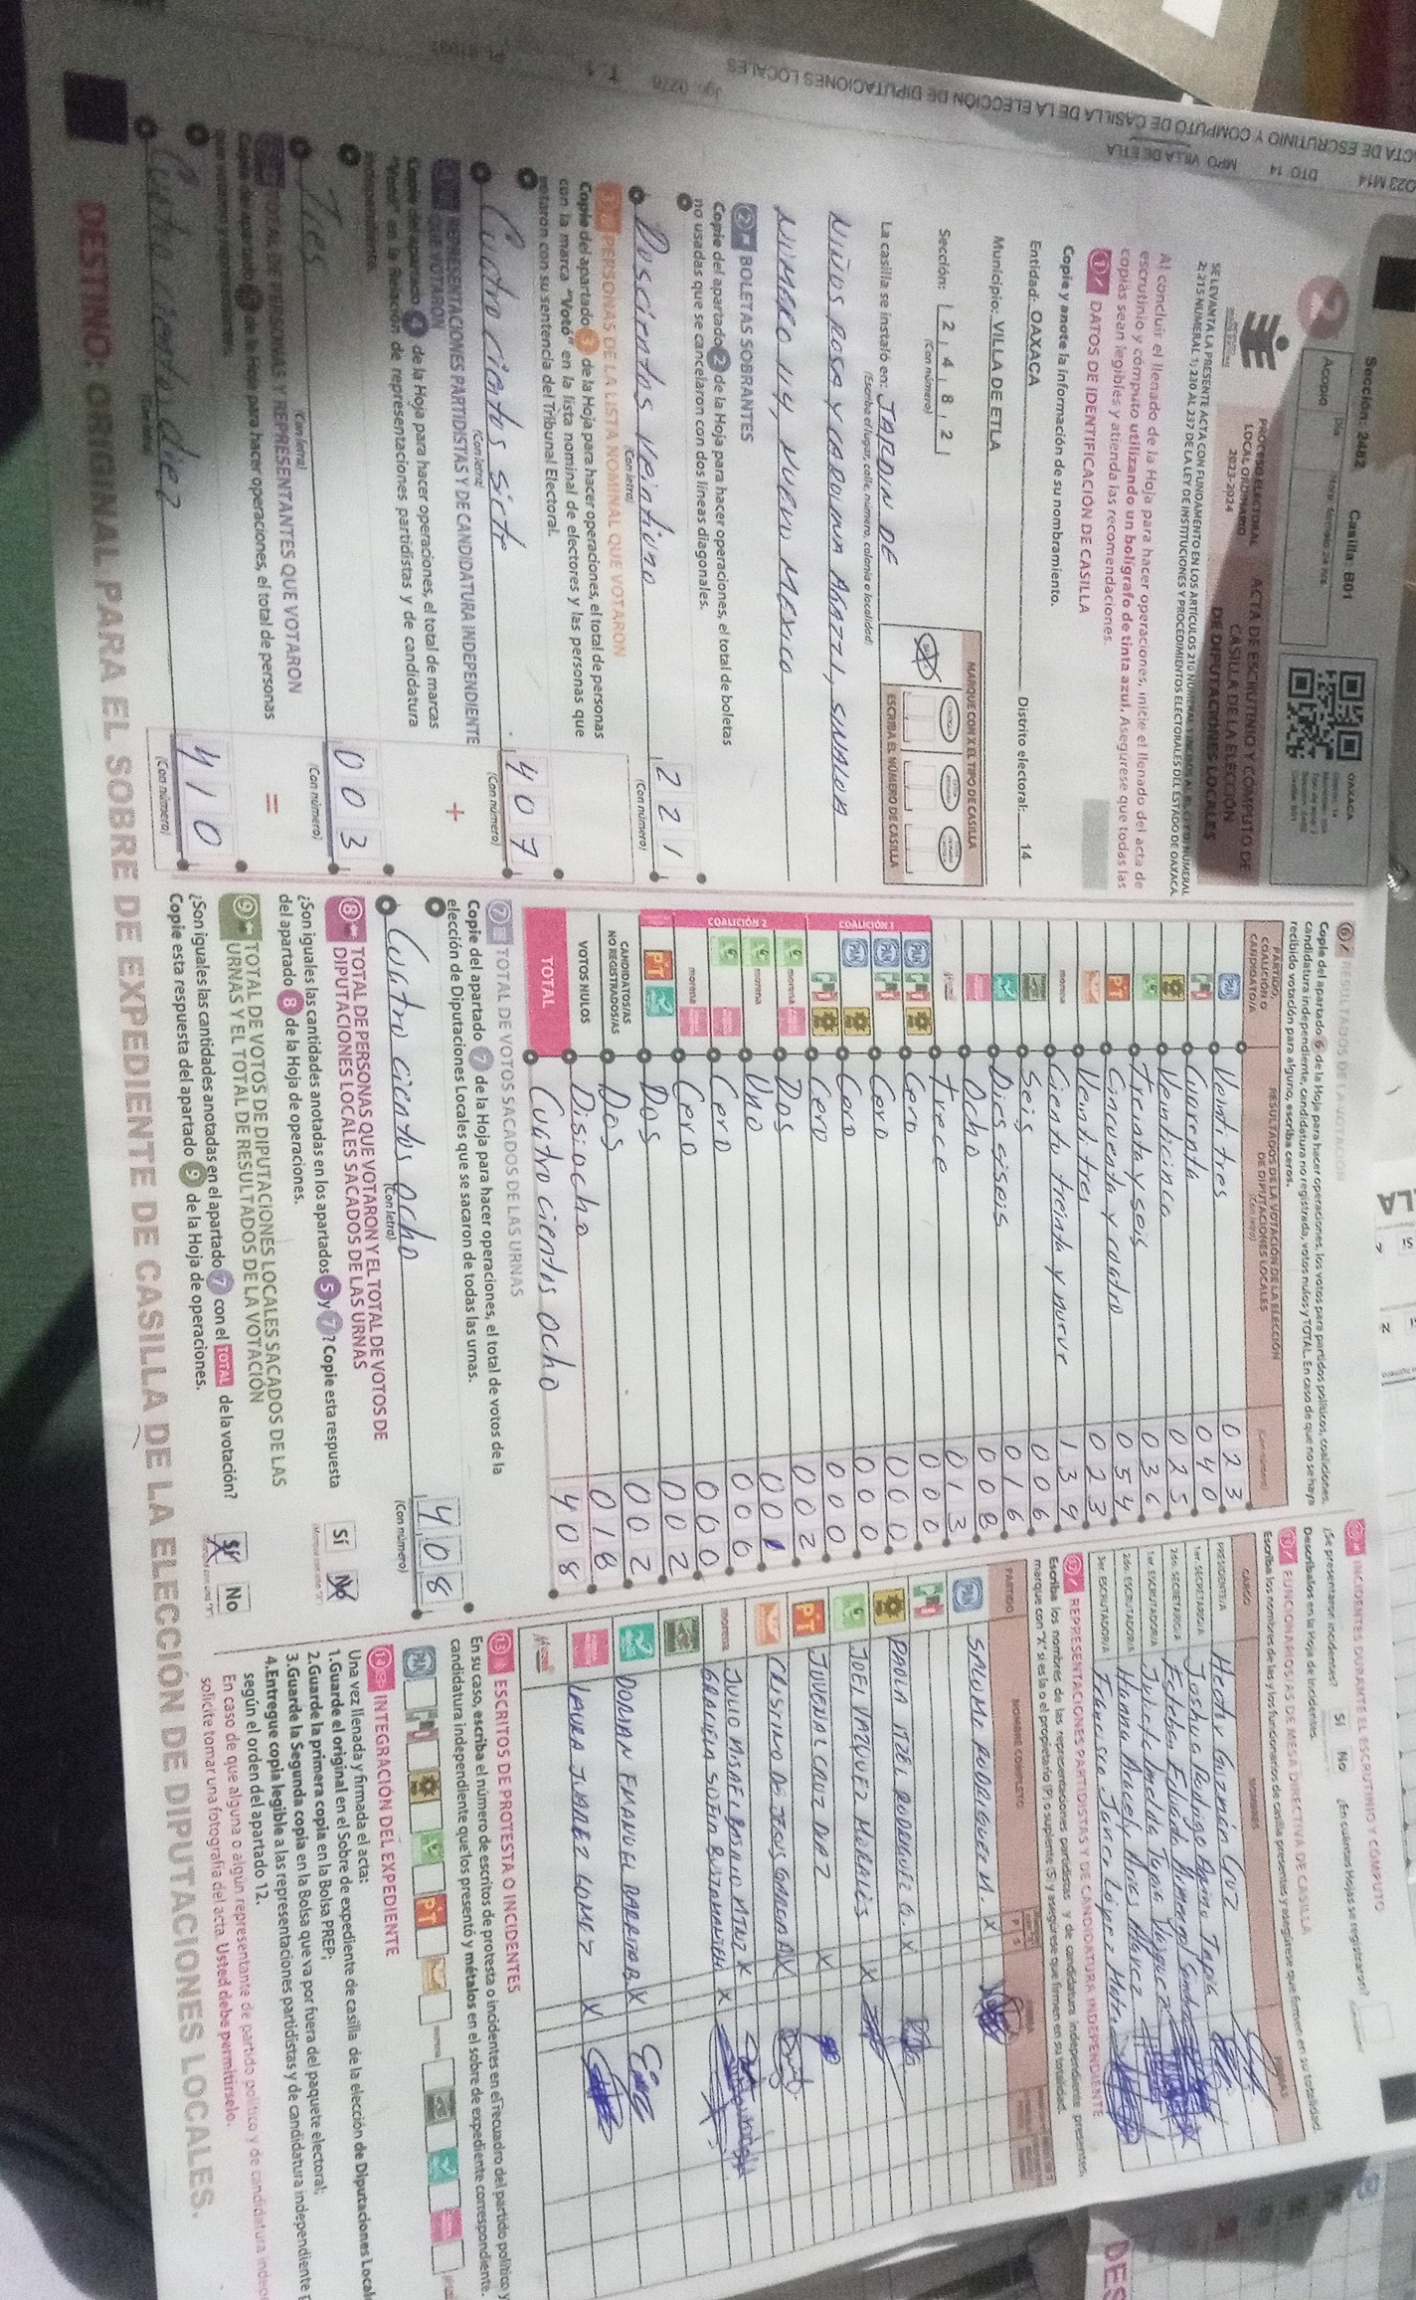 ACTA DE ESCRUTINIO Y COMPUTO DE CASILLA DE LA ELECCIÓN DE DIPUTACIONES LOCALES
DTO 14 MPO VILLA DE ETLA
Sección: 2482 Casilla: B01
OAXACA
2
Acopio
PROCESO ELECTORAL
LOCAL ORDINARIO
2023-2024
ACTA DE ESCRUTINIO Y CÓMPUTO DE
CASILLA DE LA ELECCIÓN
DE DIPUTACIONES LOCALES
Al concluir el llenado de la Hoja para hacer operaciones, inicie el llenado del acta de
escrutinio y cómputo utilizando un bolígrafo de tinta azul. Asegúrese que todas las
copias sean legibles y atienda las recomendaciones.
1 DATOS DE IDENTIFICACIÓN DE CASILLA
Copie y anote la información de su nombramiento.
Entidad: OAXACA Distrito electoral: 14
Municipio: VILLA DE ETLA
Sección: 2 4 8 2
(Con número)
MARQUE CON X EL TIPO DE CASILLA
ESCRIBA EL NÚMERO DE CASILLA
La casilla se instaló en: JARDIN DE
(Escriba el lugar, calle, número, colonia o localidad)
NIÑOS ROSA Y CAROLINA AGAZZI, SINALOA
NUMERO 114, NUEVO MEXICO
2 BOLETAS SOBRANTES
Copie del apartado 2 de la Hoja para hacer operaciones, el total de boletas
no usadas que se cancelaron con dos líneas diagonales.
Doscientos veintiuno 221
(Con letra) (Con número)
3 PERSONAS DE LA LISTA NOMINAL QUE VOTARON
Copie del apartado 3 de la Hoja para hacer operaciones, el total de personas
con la marca "Votó" en la lista nominal de electores y las personas que
votaron con su sentencia del Tribunal Electoral.
Cuatrocientos siete 407
(Con letra) (Con número)
REPRESENTACIONES PARTIDISTAS Y DE CANDIDATURA INDEPENDIENTE
QUE VOTARON +
Copie del apartado 4 de la Hoja para hacer operaciones, el total de marcas
"Votó" en la Relación de representaciones partidistas y de candidatura
independiente.
Tres 003
(Con letra) (Con número)
TOTAL DE PERSONAS Y REPRESENTANTES QUE VOTARON =
Copie del apartado 5 de la Hoja para hacer operaciones, el total de personas
que votaron y representantes.
Cuatrocientos diez 410
(Con letra) (Con número)
6 RESULTADOS DE LA VOTACIÓN
Copie del apartado 6 de la Hoja para hacer operaciones, los votos para partidos políticos, coaliciones,
candidatura independiente, candidatura no registrada, votos nulos y TOTAL. En caso de que no se haya
recibido votación para alguno, escriba ceros.
PARTIDO,
COALICIÓN O
CANDIDATO/A
RESULTADOS DE LA VOTACIÓN DE LA ELECCIÓN
DE DIPUTACIONES LOCALES
(Con letra)
PAN Veintitres 023
Cuarenta 040
Veinticinco 025
Treinta y seis 036
PT Cincuenta y cuatro 054
Veintitres 023
morena Ciento treinta y nueve 139
Seis 006
Dieciseis 016
Ocho 008
Trece 013
COALICIÓN 1
PAN Cero 000
PAN Cero 000
PAN Cero 000
Cero 000
COALICIÓN 2
morena Dos 002
morena Uno 001
Cero 000
morena Cero 000
PT Dos 002
CANDIDATOS/AS
NO REGISTRADOS/AS Dos 002
VOTOS NULOS Disiocho 018
TOTAL Cuatrocientos ocho 408
7 TOTAL DE VOTOS SACADOS DE LAS URNAS
Copie del apartado 7 de la Hoja para hacer operaciones, el total de votos de la
elección de Diputaciones Locales que se sacaron de todas las urnas.
Cuatrocientos ocho 408
(Con letra) (Con número)
8 TOTAL DE PERSONAS QUE VOTARON Y EL TOTAL DE VOTOS DE
DIPUTACIONES LOCALES SACADOS DE LAS URNAS
¿Son iguales las cantidades anotadas en los apartados 5 y 7? Copie esta respuesta
del apartado 8 de la Hoja de operaciones. Sí No
9 TOTAL DE VOTOS DE DIPUTACIONES LOCALES SACADOS DE LAS
URNAS Y EL TOTAL DE RESULTADOS DE LA VOTACIÓN
¿Son iguales las cantidades anotadas en el apartado 7 con el TOTAL de la votación?
Copie esta respuesta del apartado 9 de la Hoja de operaciones. Sí No
INCIDENTES DURANTE EL ESCRUTINIO Y CÓMPUTO
¿Se presentaron incidentes? Sí No ¿En cuántas Hojas se registraron?
Descríbalos en la Hoja de Incidentes.
FUNCIONARIOS/AS DE MESA DIRECTIVA DE CASILLA
Escriba los nombres de las y los funcionarios de casilla presentes y asegúrese que firmen en su totalidad.
CARGO NOMBRES FIRMAS
PRESIDENTE/A Hector Guzmán Cruz
1er. SECRETARIO/A Joshua Rodrigo
2do. SECRETARIO/A Esteban Eduardo
1er. ESCRUTADOR/A Julieta Imelda
2do. ESCRUTADOR/A Hanna Aracely
3er. ESCRUTADOR/A Francisco López
12 REPRESENTACIONES PARTIDISTAS Y DE CANDIDATURA INDEPENDIENTE
Escriba los nombres de las representaciones partidistas y de candidatura independiente presentes,
marque con "X" si es la o el propietario (P) o suplente (S) y asegúrese que firmen en su totalidad.
PARTIDO NOMBRE COMPLETO
PAN SALOME RODRIGUEZ M. X
PAOLA ITZEL RODRIGUEZ G. X
JOEL VAZQUEZ MORALES X
PT JUVENAL CRUZ DIAZ X
CRISTINO DE JESUS GARCIA X
morena JULIO MISAEL X
GRACIELA X
DORIAN EMANUEL BARRITA B. X
LAURA JUAREZ GOMEZ X
13 ESCRITOS DE PROTESTA O INCIDENTES
En su caso, escriba el número de escritos de protesta o incidentes en el recuadro del partido político y
candidatura independiente que los presentó y métalos en el sobre de expediente correspondiente.
PAN PT morena
14 INTEGRACIÓN DEL EXPEDIENTE
Una vez llenada y firmada el acta:
1.Guarde el original en el Sobre de expediente de casilla de la elección de Diputaciones Local
2.Guarde la primera copia en la Bolsa PREP;
3.Guarde la Segunda copia en la Bolsa que va por fuera del paquete electoral;
4.Entregue copia legible a las representaciones partidistas y de candidatura independiente
según el orden del apartado 12.
En caso de que alguna o algún representante de partido político y de candidatura indep
solicite tomar una fotografía del acta. Usted debe permitírselo.
DESTINO: ORIGINAL PARA EL SOBRE DE EXPEDIENTE DE CASILLA DE LA ELECCIÓN DE DIPUTACIONES LOCALES.